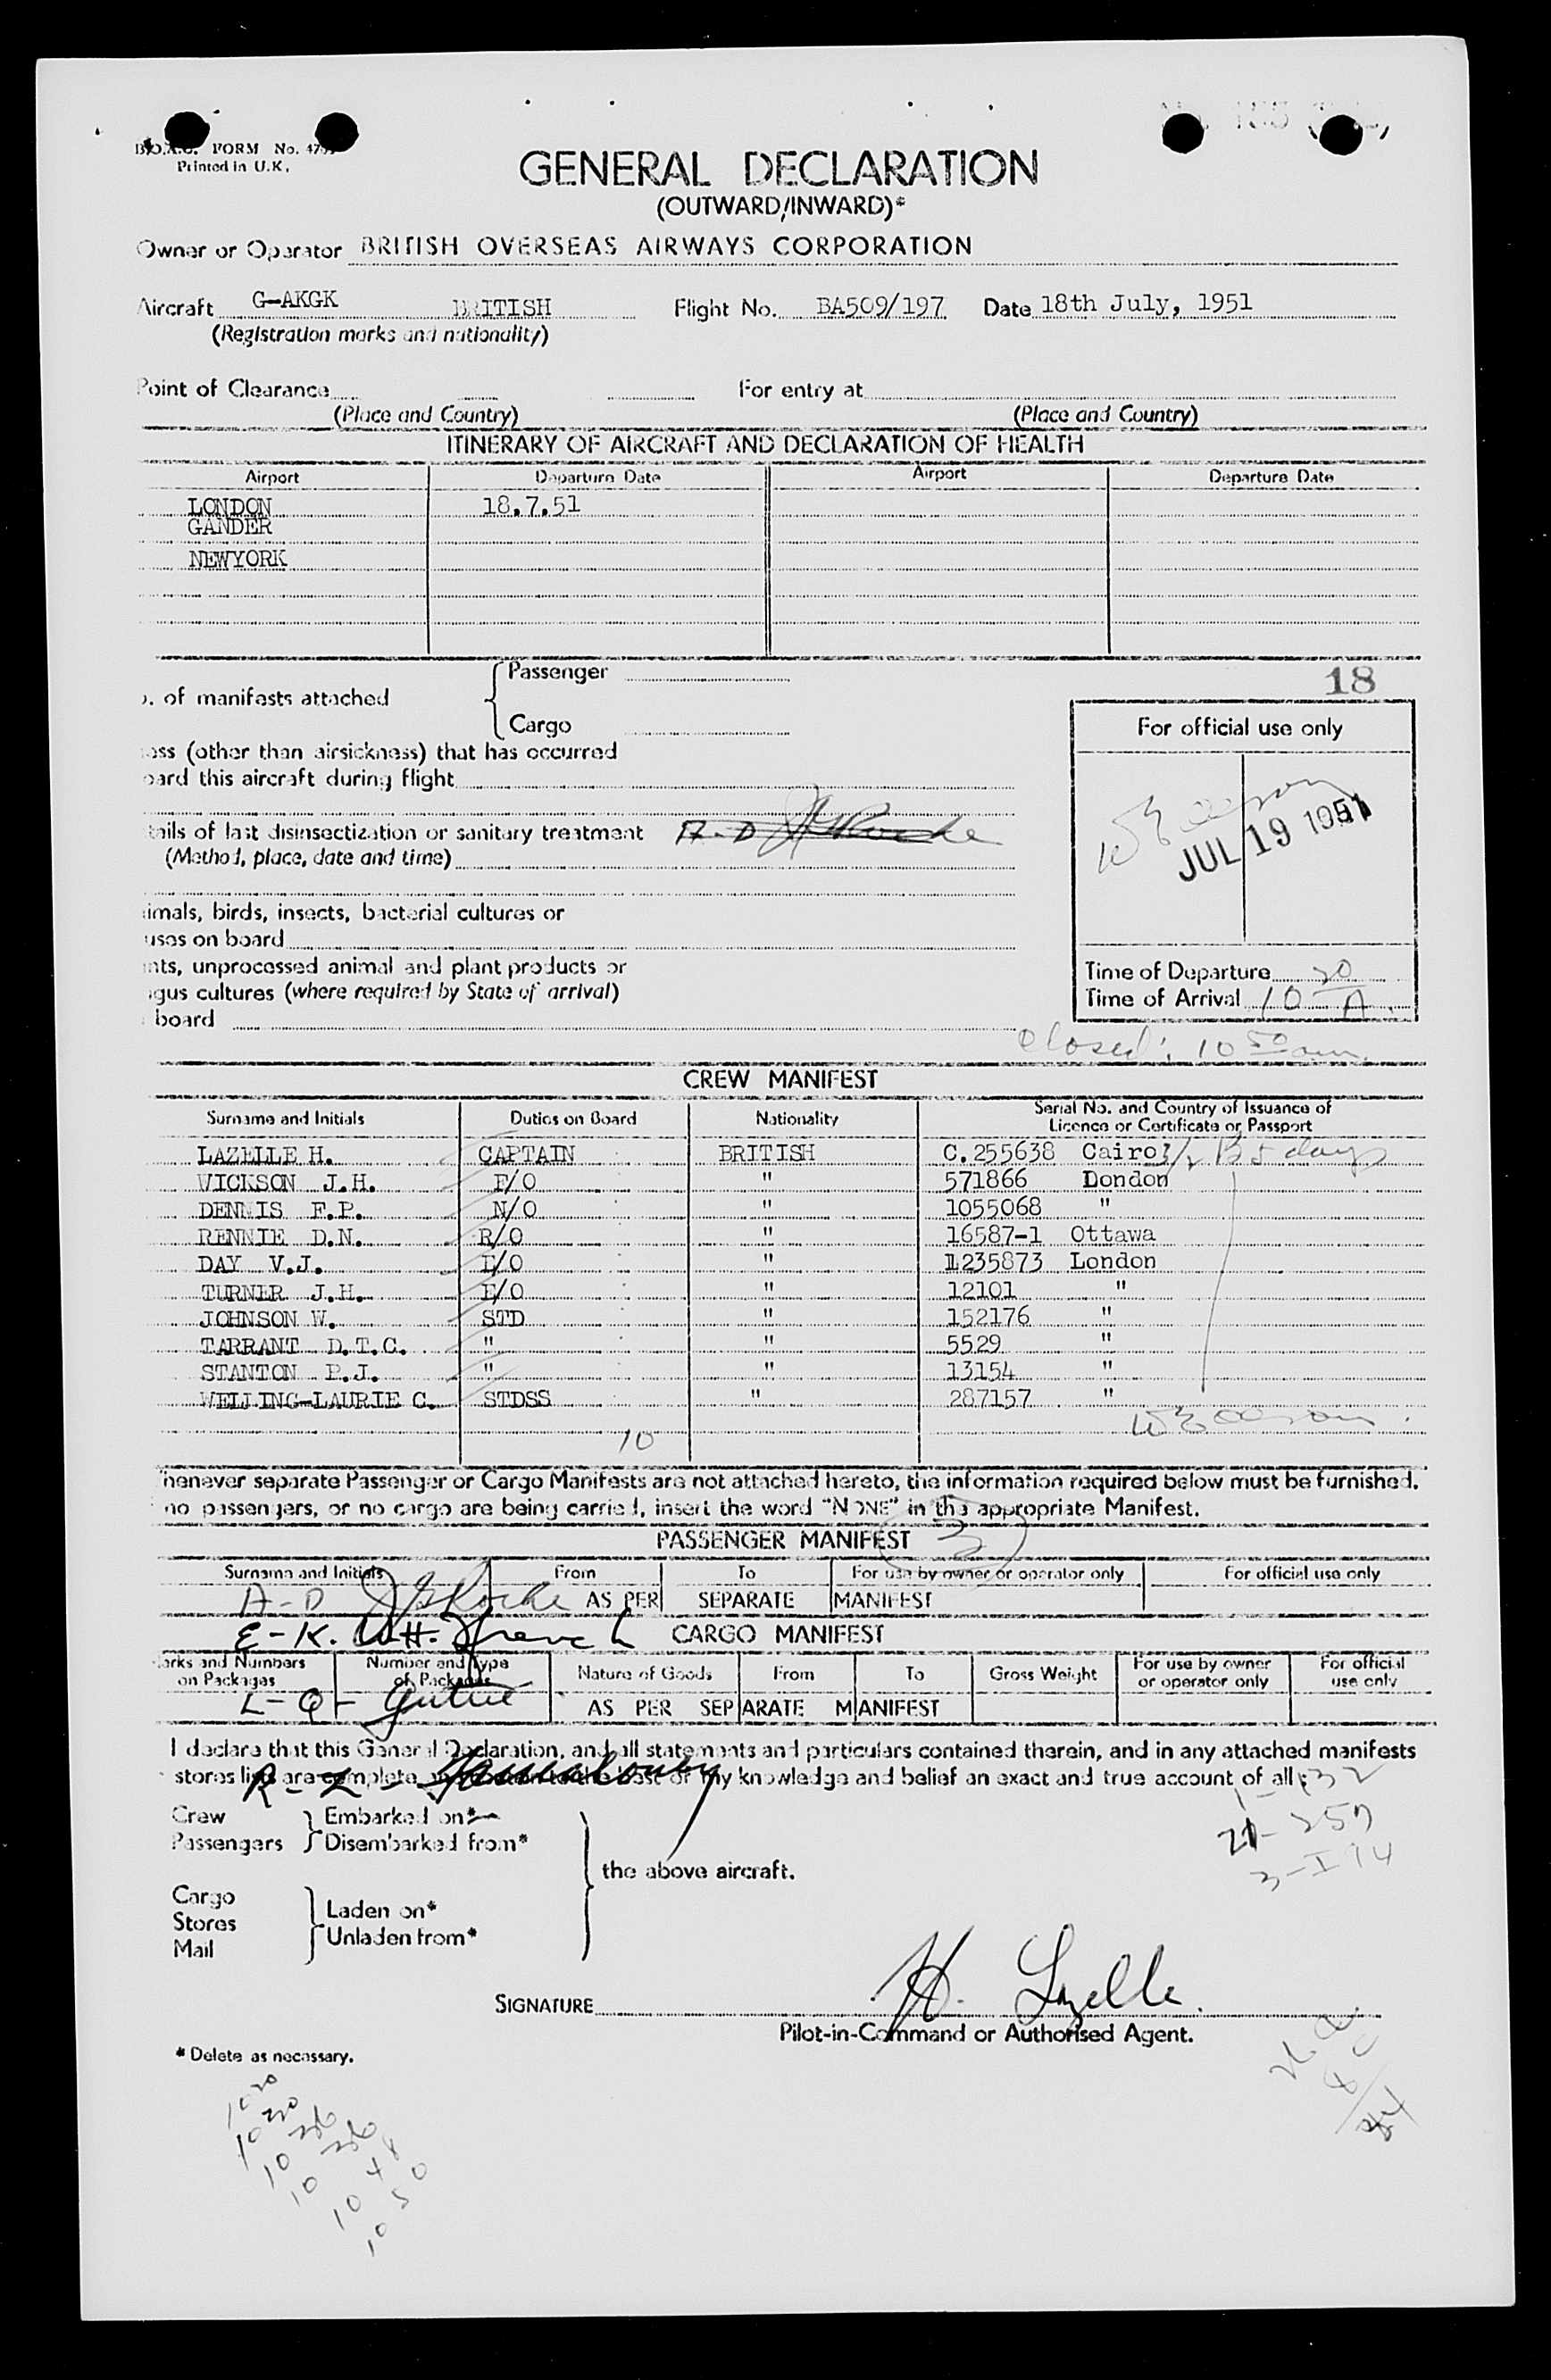 FORM No.
Printed in U.K.
GENERAL DECLARATION
(OUTWARD/INWARD)*
Owner or Operator BRITISH OVERSEAS AIRWAYS CORPORATION
Aircraft G-AKGK BRITISH Flight No. BA509/197 Date 18th July, 1951
(Registration marks and nationality)
Point of Clearance For entry at
(Place and Country) (Place and Country)
ITINERARY OF AIRCRAFT AND DECLARATION OF HEALTH
Airport Departure Date Airport Departure Date
LONDON 18.7.51
GANDER
NEWYORK
Passenger
18
. of manifests attached
Cargo
For official use only
ess (other than airsickness) that has occurred
oard this aircraft during flight
JUL 19 1951
tails of last disinsectization or sanitary treatment A-D J Roche
(Method, place, date and time)
imals, birds, insects, bacterial cultures or
uses on board
nts, unprocessed animal and plant products or
gus cultures (where required by State of arrival)
board
Time of Departure
Time of Arrival 10 20 A
closed: 10 50 am.
CREW MANIFEST
Surname and Initials Duties on Board Nationality Serial No. and Country of Issuance of
Licence or Certificate or Passport
LAZELLE H. CAPTAIN BRITISH C.255638 Cairo days
WICKSON J.H. F/O " 571866 London
DENNIS F.P. N/O " 1055068 "
RENNIE D.N. R/O " 16587-1 Ottawa
DAY V.J. E/O " 1235873 London
TURNER J.H. E/O " 12101 "
JOHNSON W. STD " 152176 "
TARRANT D.T.C. " " 5529 "
STANTON P.J. " " 13154 "
WELLING-LAURIE C. STDSS " 287157 "
10
henever separate Passenger or Cargo Manifests are not attached hereto, the information required below must be furnished.
no passengers, or no cargo are being carried, insert the word "NONE" in the appropriate Manifest.
PASSENGER MANIFEST 3
Surname and Initials From To For use by owner or operator only For official use only
A-D J Roche AS PER SEPARATE MANIFEST
E-K. W.H. French CARGO MANIFEST
Marks and Numbers on Packages Number and Type of Packages Nature of Goods From To Gross Weight For use by owner or operator only For official use only
L-Q- AS PER SEPARATE MANIFEST
I declare that this General Declaration, and all statements and particulars contained therein, and in any attached manifests
stores lists are complete knowledge and belief an exact and true account of all
R-Z-
Crew Embarked on*
Passengers Disembarked from*
the above aircraft.
Cargo
Stores Laden on*
Mail Unladen from*
SIGNATURE H. Lazelle.
Pilot-in-Command or Authorised Agent.
* Delete as necessary.
10 20
10 20
10 48
10 50